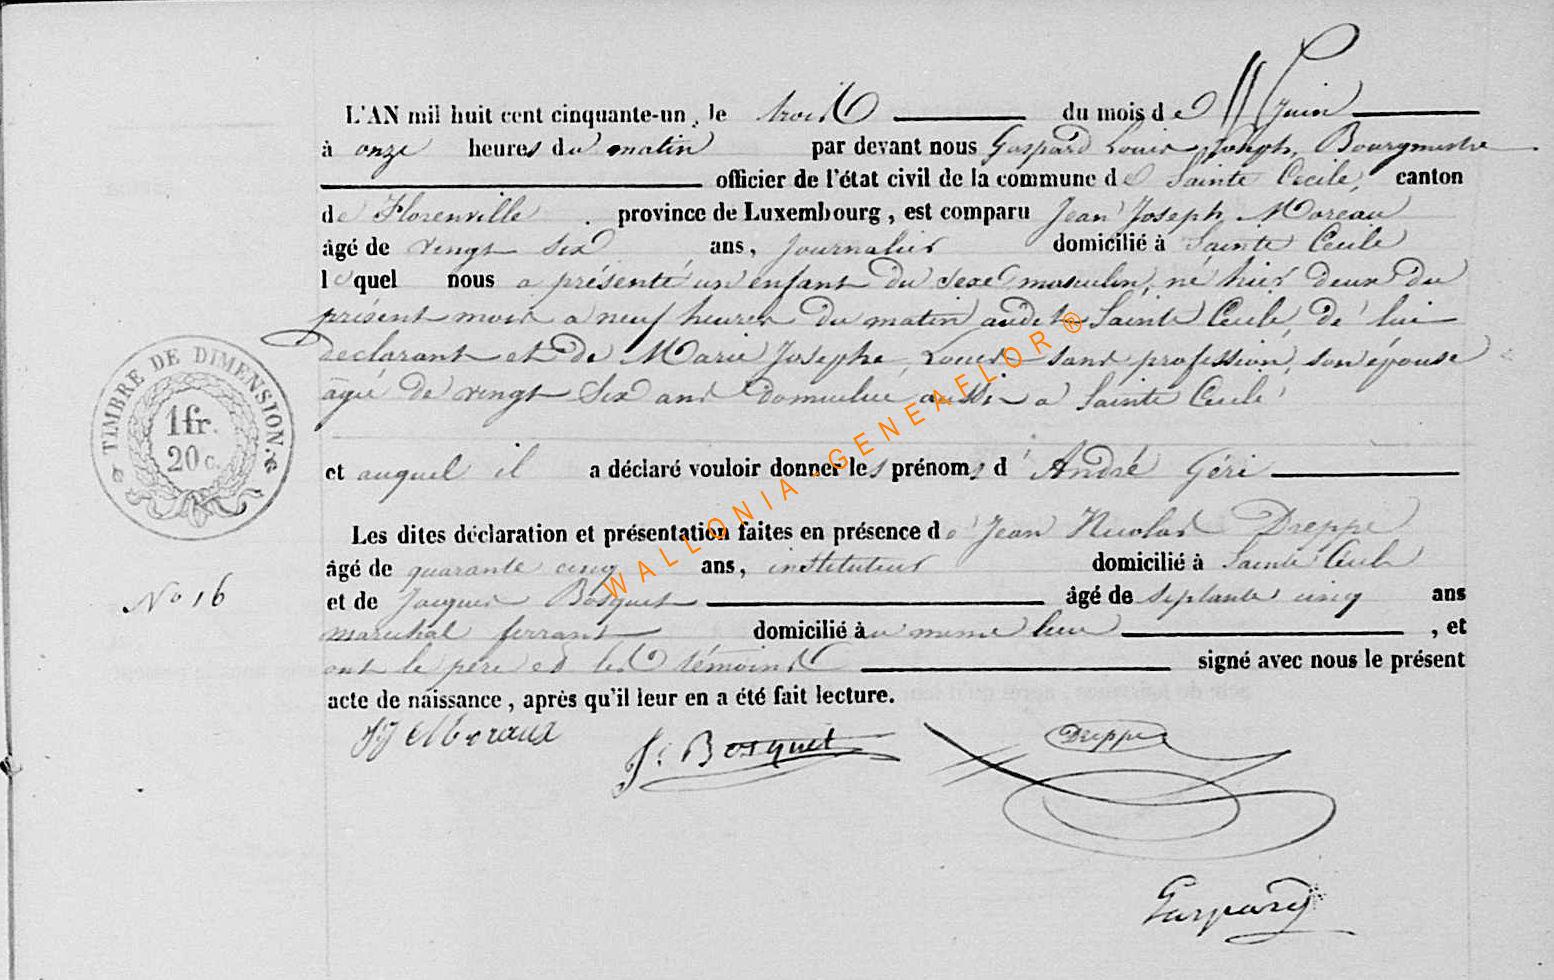 L'AN mil huit cent cinquante-un, le trois du mois de Juin
à onze heures du matin par devant nous Gaspard Louis Joseph, Bourgmestre
officier de l'état civil de la commune de Sainte Cecile, canton
de Florenville province de Luxembourg, est comparu Jean Joseph Moreau
âgé de vingt six ans, journalier domicilié à Sainte Cecile
lequel nous a présenté un enfant du sexe masculin, né hier deux du
présent mois a neuf heures du matin audit Sainte Cecile, de lui
déclarant et de Marie Josephe, Louis sans profession, son épouse
agée de vingt six ans domiciliée aussi a Sainte Cecile
et auquel il a déclaré vouloir donner les prénoms d'André Géri
Les dites déclaration et présentation faites en présence de Jean Nicolas Dreppe
âgé de quarante cinq ans, instituteur domicilié à Sainte Cecile
et de Jacques Bosquet âgé de septante cinq ans
marechal ferrant domicilié au meme lieu, et
ont le père et les témoins signé avec nous le présent
acte de naissance, après qu'il leur en a été fait lecture.
TIMBRE DE DIMENSION.
1 fr.
20 c.
No 16
JJ Moraux
J: Bosquet
Dreppe
Gaspard
WALLONIA-GENEAFLOR®